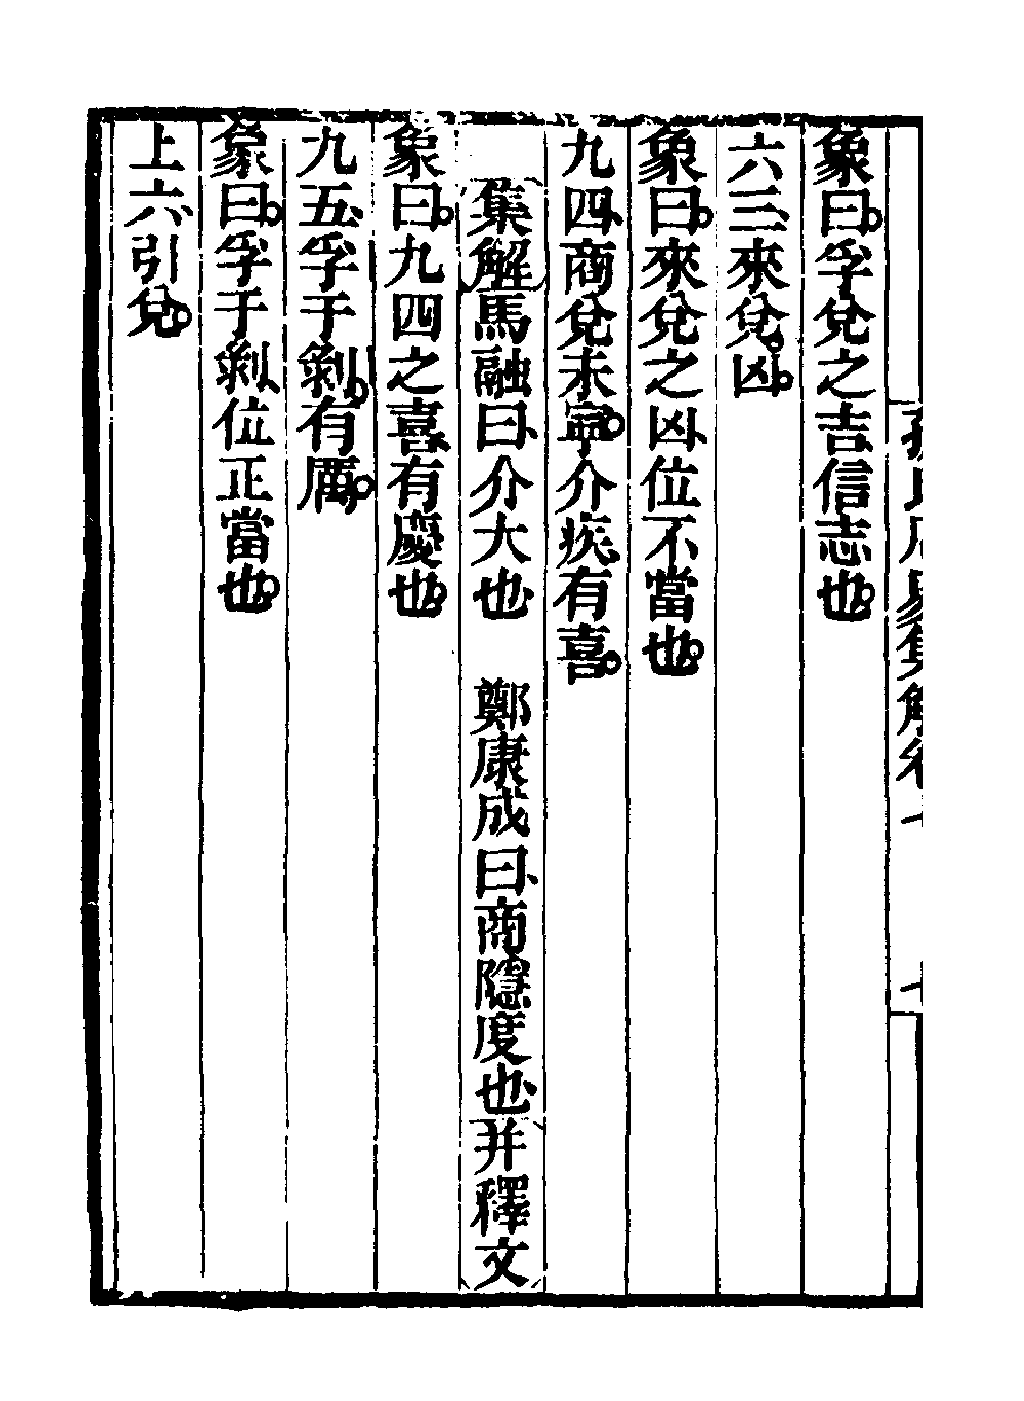 孫氏周易集解卷
象曰。孚兌之吉信志也。
六三、來兌。凶。
象曰。來兌之凶、位不當也。
九四、商兌未寧。介疾、有喜。
集解馬融曰、介大也　鄭康成曰、商隱度也、并釋文
象曰。九四之喜、有慶也。
九五、孚于剝。有厲。
象曰。孚于剝、位正當也。
上六、引兌。